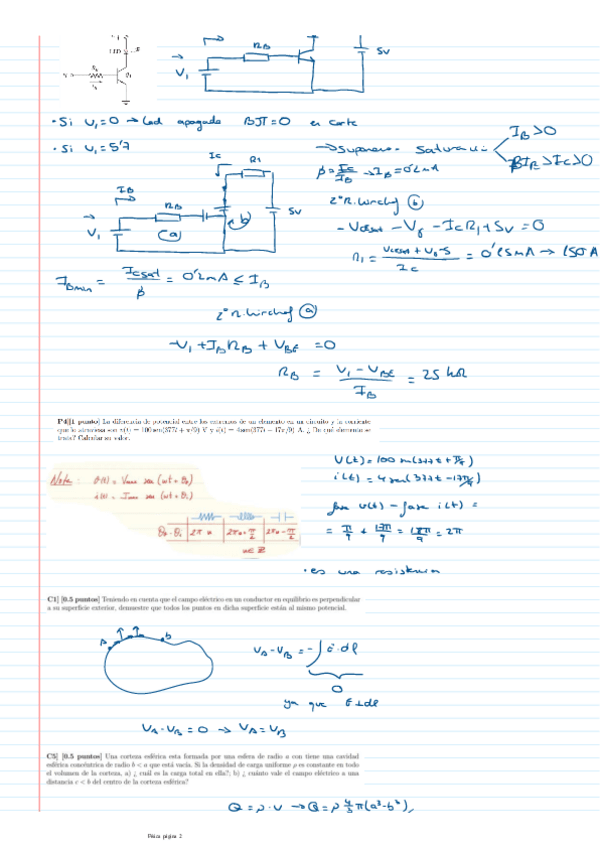 LED
R_B
V₁
5V
• Si V₁=0 → Led apagado BJT=0 en corte
• Si V₁=5'7 → Suponemos Saturación
I_B>0
βI_B>I_C>0
β=I_C/I_B → I_B=0'2mA
I_C R₁
I_B
R_B
V₁ (a) b) 5V
2ª R. Kirchof (b)
-V_CEsat -V_γ -I_C R₁ + 5V =0
R₁ = = 0'15mA → 150 A
I_Bmin = I_Csat/β = 0'2mA ≤ I_B
2ª R. Kirchof (a)
-V₁ + I_B R_B + V_BE =0
R_B = (V₁ - V_BE)/I_B = 25 kΩ
P4][1 punto] La diferencia de potencial entre los extremos de un elemento en un circuito y la corriente
que lo atraviesa son v(t) = 100 sen(377t + π/9) V y i(t) = 4sen(377t − 17π/9) A. ¿ De qué elemento se
trata? Calcular su valor.
Nota: v(t) = V_max sen (wt + θ_v)
i(t) = I_max sen (wt + θ_i)
θ_v - θ_i | 2π n | 2πn+π/2 | 2πn-π/2
n∈Z
V(t)=100 sen(377t + π/9)
i(t) = 4 sen(377t -17π/9)
fase v(t) - fase i(t) =
= π/9 + 17π/9 = 18π/9 = 2π
• es una resistencia
C1] [0.5 puntos] Teniendo en cuenta que el campo eléctrico en un conductor en equilibrio es perpendicular
a su superficie exterior, demuestre que todos los puntos en dicha superficie están al mismo potencial.
A b
V_A - V_B = -∫ E·dl
0
ya que E⊥dl
V_A - V_B = 0 → V_A = V_B
C5] [0.5 puntos] Una corteza esférica esta formada por una esfera de radio a con tiene una cavidad
esférica concéntrica de radio b < a que está vacía. Si la densidad de carga uniforme ρ es constante en todo
el volumen de la corteza, a) ¿ cuál es la carga total en ella?; b) ¿ cuánto vale el campo eléctrico a una
distancia c < b del centro de la corteza esférica?
Q = ρ·V → Q = ρ 4/3 π(a³-b³)
Física página 2